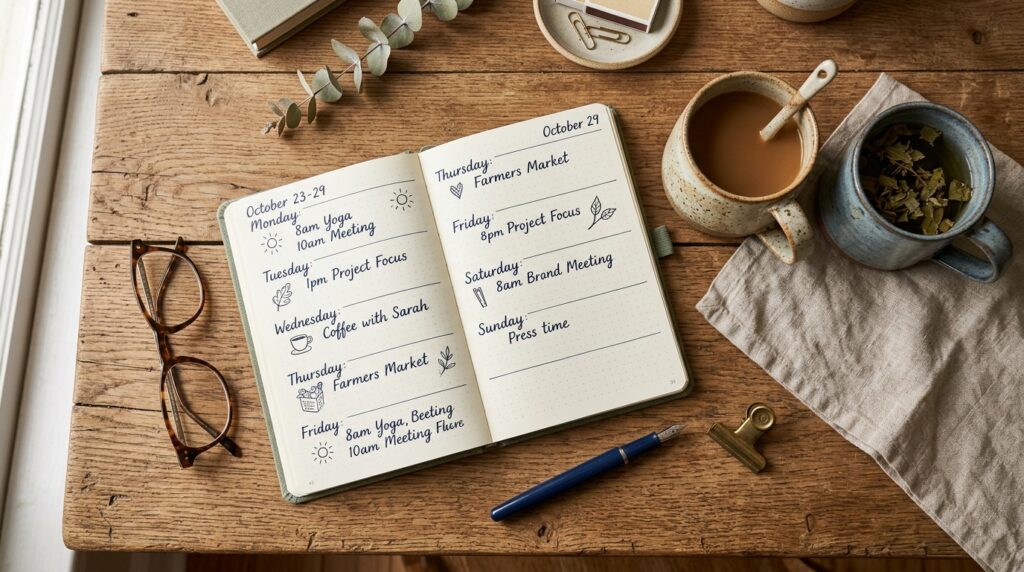 October 23-29
Monday:
8am Yoga
10am Meeting
Tuesday:
1pm Project Focus
Wednesday:
Coffee with Sarah
Thursday:
Farmers Market
Friday:
8am Yoga, Beeting
10am Meeting
October 29
Thursday:
Farmers Market
Friday:
8pm Project Focus
Saturday:
8am Brand Meeting
Sunday:
Press time